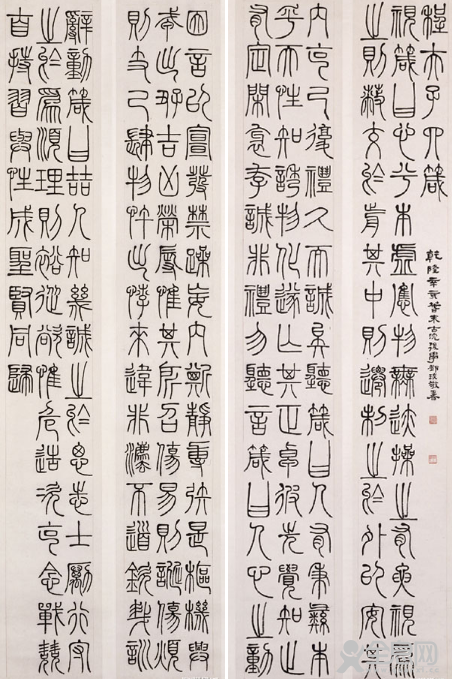 程夫子四箴
視箴曰心兮本虛應物無迹操之有要視為
之則蔽交於前其中則遷制之於外以安其
內克己復禮久而誠矣聽箴曰人有秉彝本
乎天性知誘物化遂亡其正卓彼先覺知止
有定閑邪存誠非禮勿聽言箴曰人心之動
因言以宣發禁躁妄內斯靜專矧是樞機興
戎出好吉凶榮辱惟其所召傷易則誕傷煩
則支己肆物忤出悖來違非法不道欽哉訓
辭動箴曰哲人知幾誠之於思志士勵行守
之於為順理則裕從欲惟危造次克念戰兢
自持習與性成聖賢同歸
乾隆辛亥 鄧琰敬書